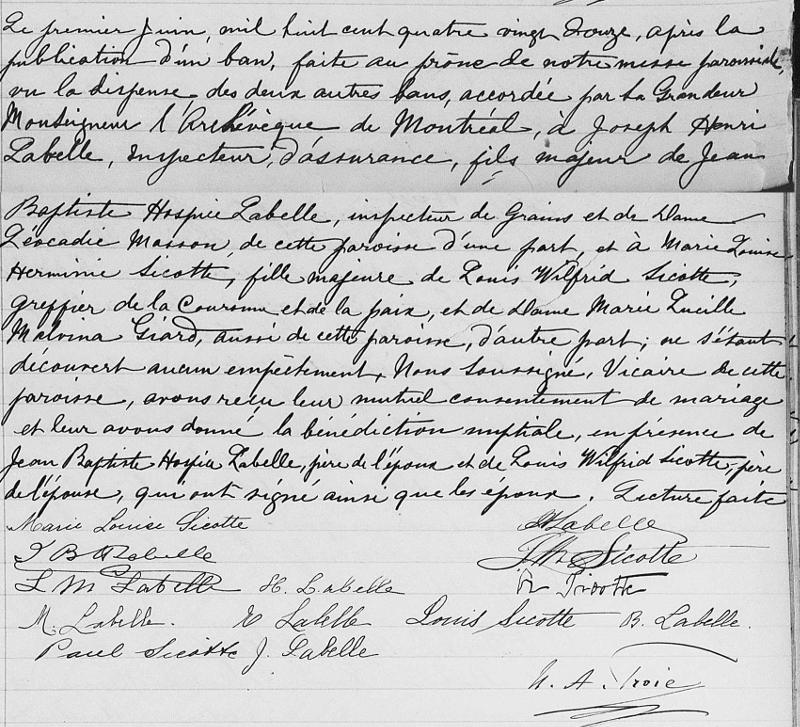 Le premier Juin, mil huit cent quatre vingt douze, après la
publication d'un ban, faite au prône de notre messe paroissiale,
vu la dispense des deux autres bans, accordée par Sa Grandeur
Monseigneur l'Archévèque de Montréal, à Joseph Henri
Labelle, Inspecteur, d'assurance, fils majeur de Jean
Baptiste Hospice Labelle, inspecteur de Grains et de Dame
Léocadie Masson, de cette paroisse d'une part, et à Marie Louise
Herminie Sicotte, fille majeure de Louis Wilfrid Sicotte,
greffier de la Couronne et de la paix, et de Dame Marie Lucille
Malvina Giard, aussi de cette paroisse, d'autre part; ne s'étant
découvert aucun empêchement, Nous Soussigné, Vicaire de cette
paroisse, avons reçu leur mutuel consentement de mariage
et leur avons donné la bénédiction nuptiale, en présence de
Jean Baptiste Hospice Labelle, père de l'époux et de Louis Wilfrid Sicotte, père
de l'épouse, qui ont signé ainsi que les époux. Lecture faite
Marie Louise Sicotte Labelle
J B H Labelle Sicotte
L M Labelle H. Labelle
M. Labelle. Labelle Louis Sicotte B. Labelle.
Paul Sicotte J. Labelle
A. Troie